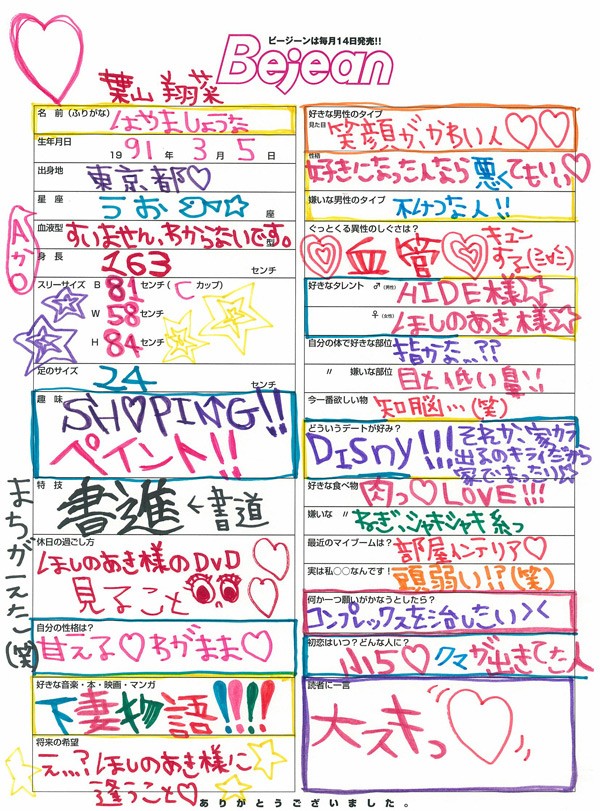 ビージーンは毎月14日発売!!
Bejean
葉山 翔菜
名 前(ふりがな)
はやましょうな
生年月日
1991年 3月 5日
出身地
東京都♡
星 座
うお 座
血液型
すいません、わからないです。 型
AかO
身 長
163 センチ
スリーサイズ B 81 センチ( C カップ)
W 58 センチ
H 84 センチ
足のサイズ
24 センチ
趣 味
SH♡PING!!
ペイント!!
特 技
書進 ← 書道
まちがえた(笑)
休日の過ごし方
ほしのあき様のDVD
見ること
自分の性格は?
甘える♡わがまま♡
好きな音楽・本・映画・マンガ
下妻物語!!!!
将来の希望
え…?ほしのあき様に
逢うこと♡
好きな男性のタイプ
見た目
笑顔が、かわいい人♡♡
性格
好きになった人なら悪くてもいい♡
嫌いな男性のタイプ
不けつな人!!
ぐっとくる異性のしぐさは?
血管 キュン
する
好きなタレント ♂(男性)
HIDE様☆
♀(女性)
ほしのあき様☆
自分の体で好きな部位
指かな…??
〃 嫌いな部位
目と低い鼻!!
今一番欲しい物
知脳…(笑)
どういうデートが好み?
DISny!!! それか、家カラ
出るのキライだから
家でまったり☆
好きな食べ物
肉っ♡LOVE!!!
嫌いな 〃
ねぎ、シャキシャキ系っ
最近のマイブームは?
部屋インテリア♡
実は私〇〇なんです!
頭弱い!?(笑)
何か一つ願いがかなうとしたら?
コンプレックスを治したい><
初恋はいつ?どんな人に?
小5♡クマが出きてた人
読者に一言
大スキっ
ありがとうございました。